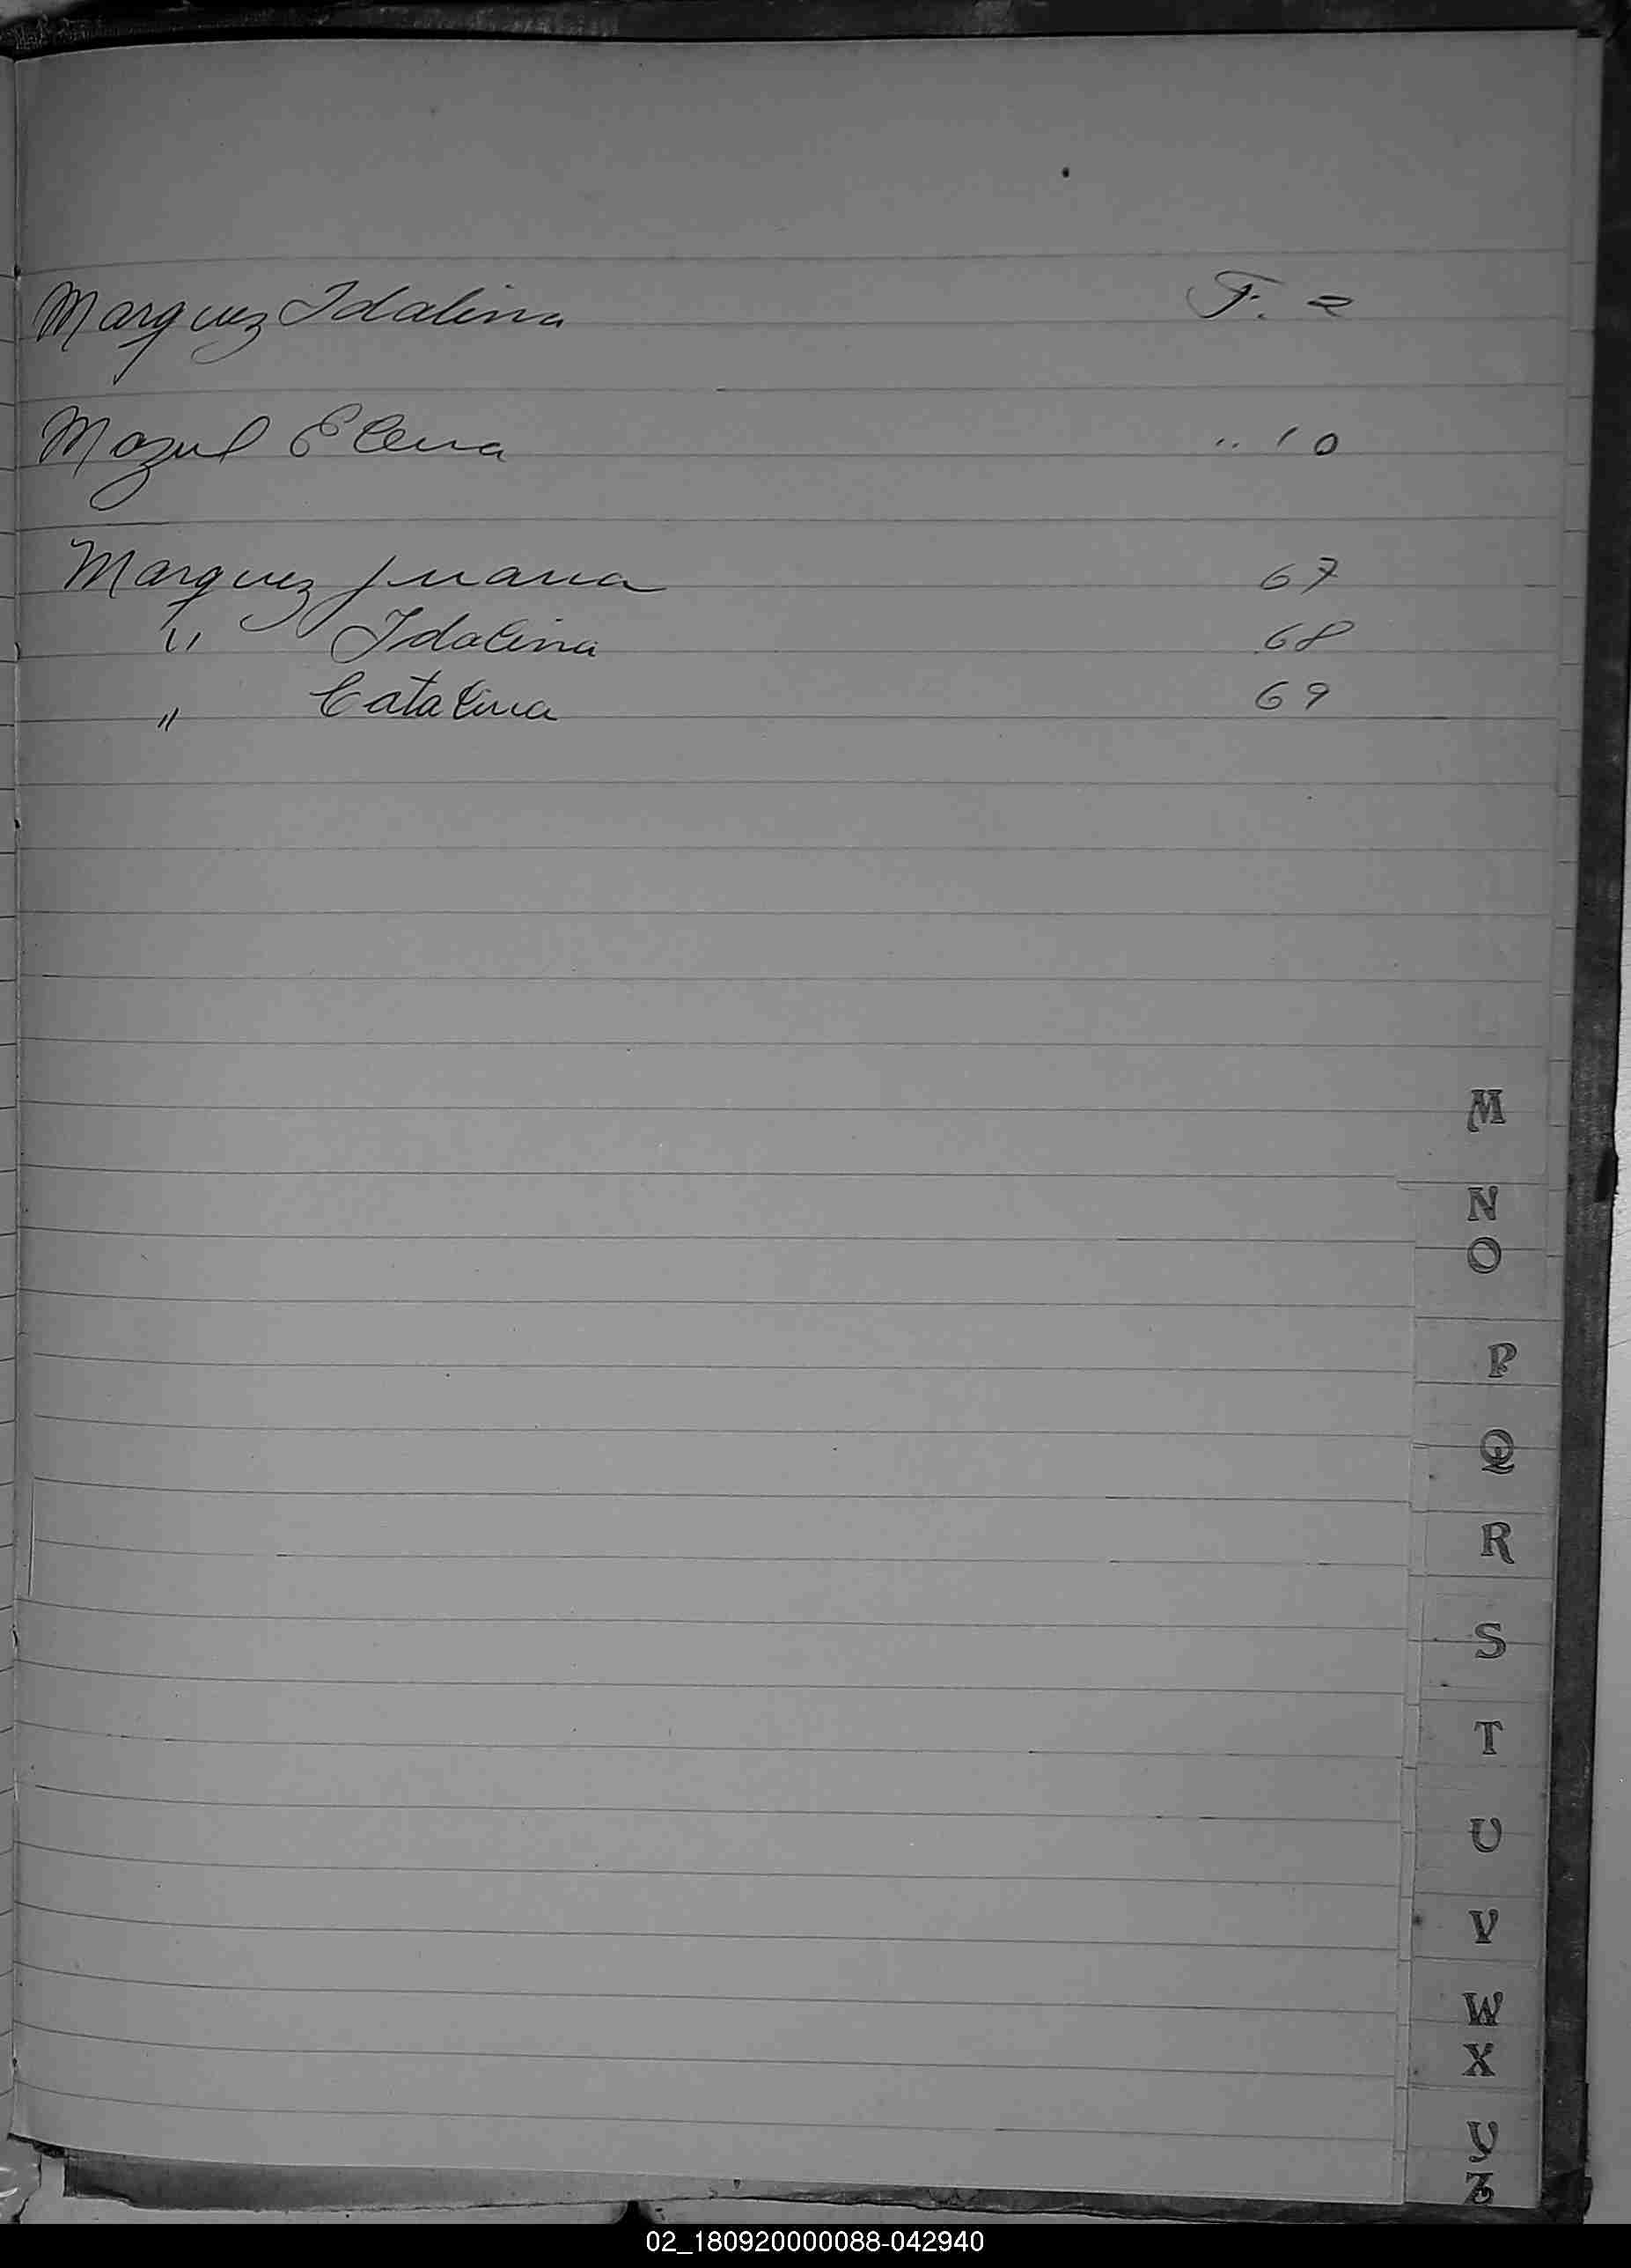 Marquez Idalina F. 2
Mazul Elena " 10
Marquez Juana 67
" Idalina 68
" Catalina 69
M
N
O
P
Q
R
S
T
U
V
W
X
Y
Z
02_180920000088-042940